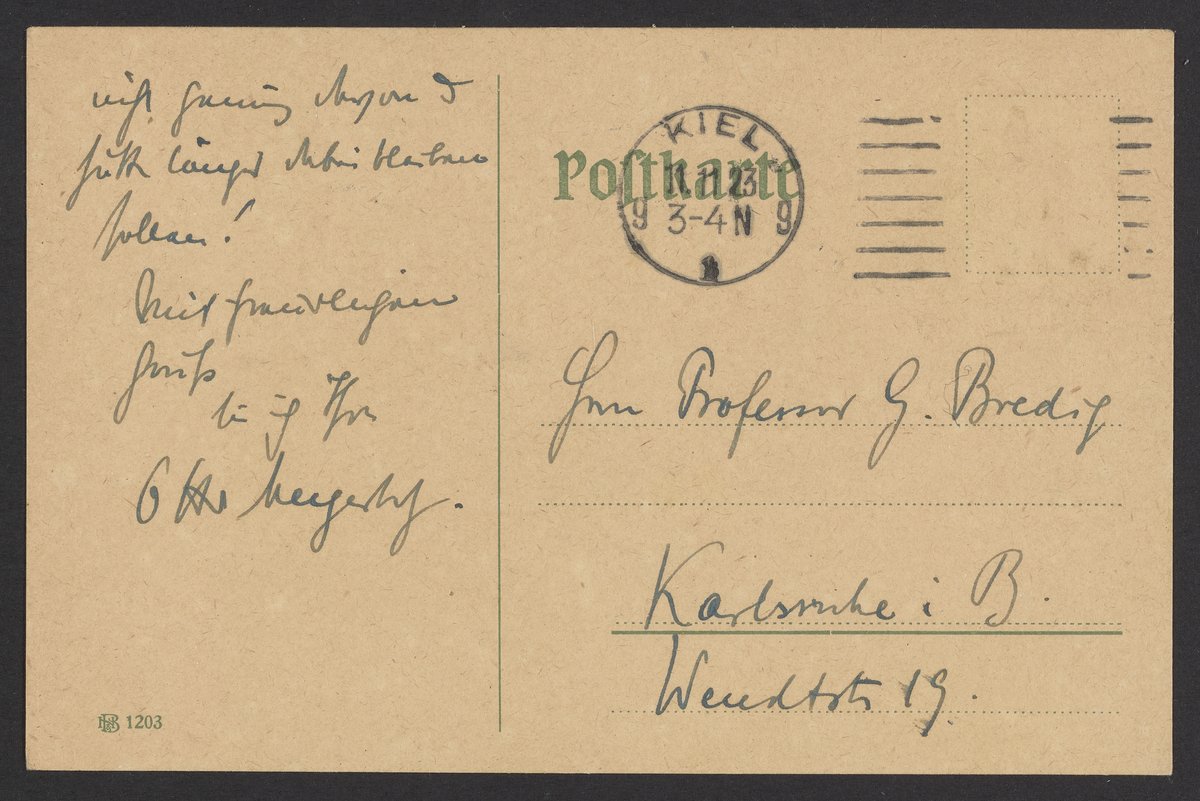 nicht genug davon &
hätte länger dabei bleiben
sollen!
Mit freundlichem
Gruß
bin ich Ihr
Otto Meyerhof.
1203
Postkarte
KIEL
11.11.23
3-4 N
9 9
Herrn Professor G. Bredig
Karlsruhe i B.
Wendtstr 19.